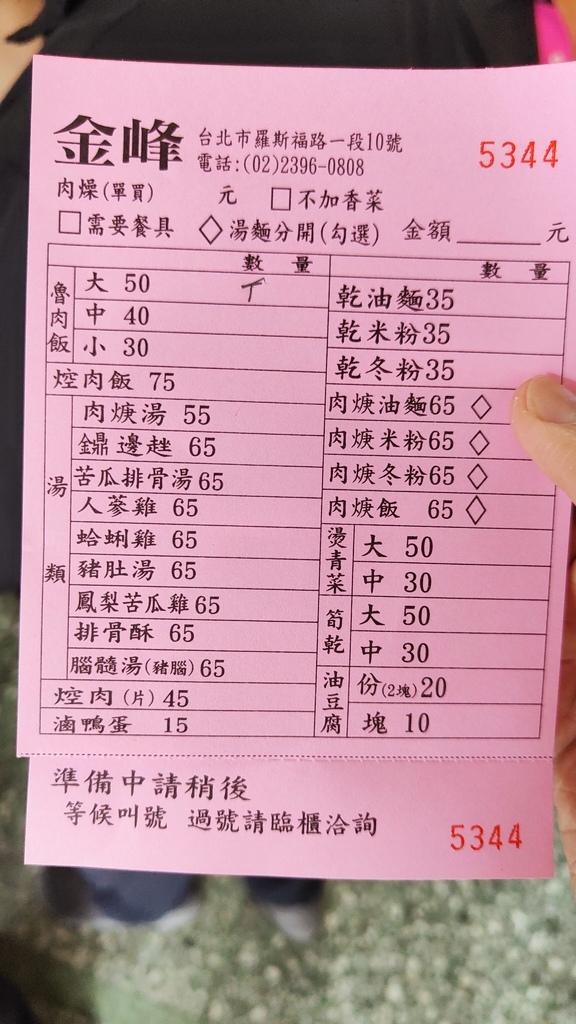 金峰
台北市羅斯福路一段10號
電話:(02)2396-0808
5344
肉燥(單買) 元 □不加香菜
□需要餐具 ◇湯麵分開(勾選) 金額______元
數 量
魯肉飯
大 50 ㆒
中 40
小 30
焢肉飯 75
湯類
肉焿湯 55
鼎邊趖 65
苦瓜排骨湯 65
人蔘雞 65
蛤蜊雞 65
豬肚湯 65
鳳梨苦瓜雞 65
排骨酥 65
腦髓湯(豬腦)65
焢肉(片)45
滷鴨蛋 15
數 量
乾油麵35
乾米粉35
乾冬粉35
肉焿油麵65 ◇
肉焿米粉65 ◇
肉焿冬粉65 ◇
肉焿飯 65 ◇
燙青菜
大 50
中 30
筍乾
大 50
中 30
油豆腐
份(2塊)20
塊 10
準備中請稍後
等候叫號 過號請臨櫃洽詢
5344